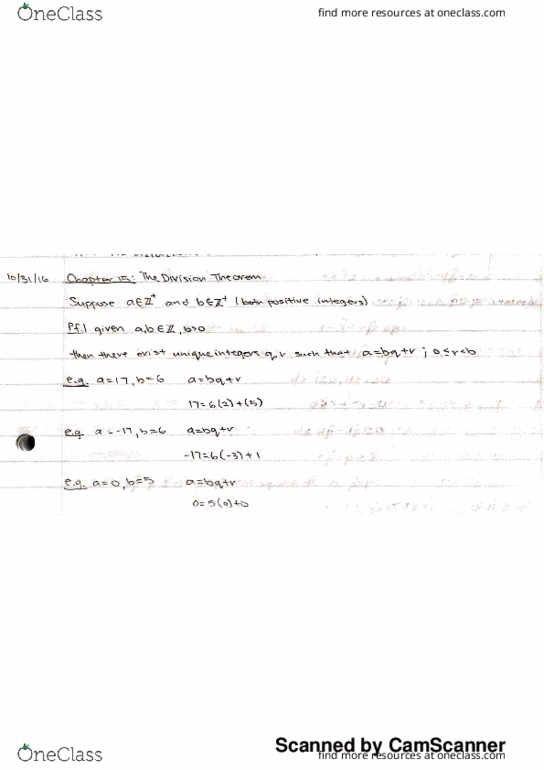 OneClass
find more resources at oneclass.com
10/31/16 Chapter 15: The Division Theorem
Suppose a∈ℤ⁺ and b∈ℤ⁺ (both positive integers)
Pf.1 given a,b∈ℤ, b>0
then there exist unique integers q,r such that a=bq+r ; 0≤r<b
e.g. a=17, b=6 a=bq+r
17=6(2)+(5)
e.g. a=-17, b=6 a=bq+r
-17=6(-3)+1
e.g. a=0, b=5 a=bq+r
0=5(0)+0
Scanned by CamScanner
OneClass
find more resources at oneclass.com